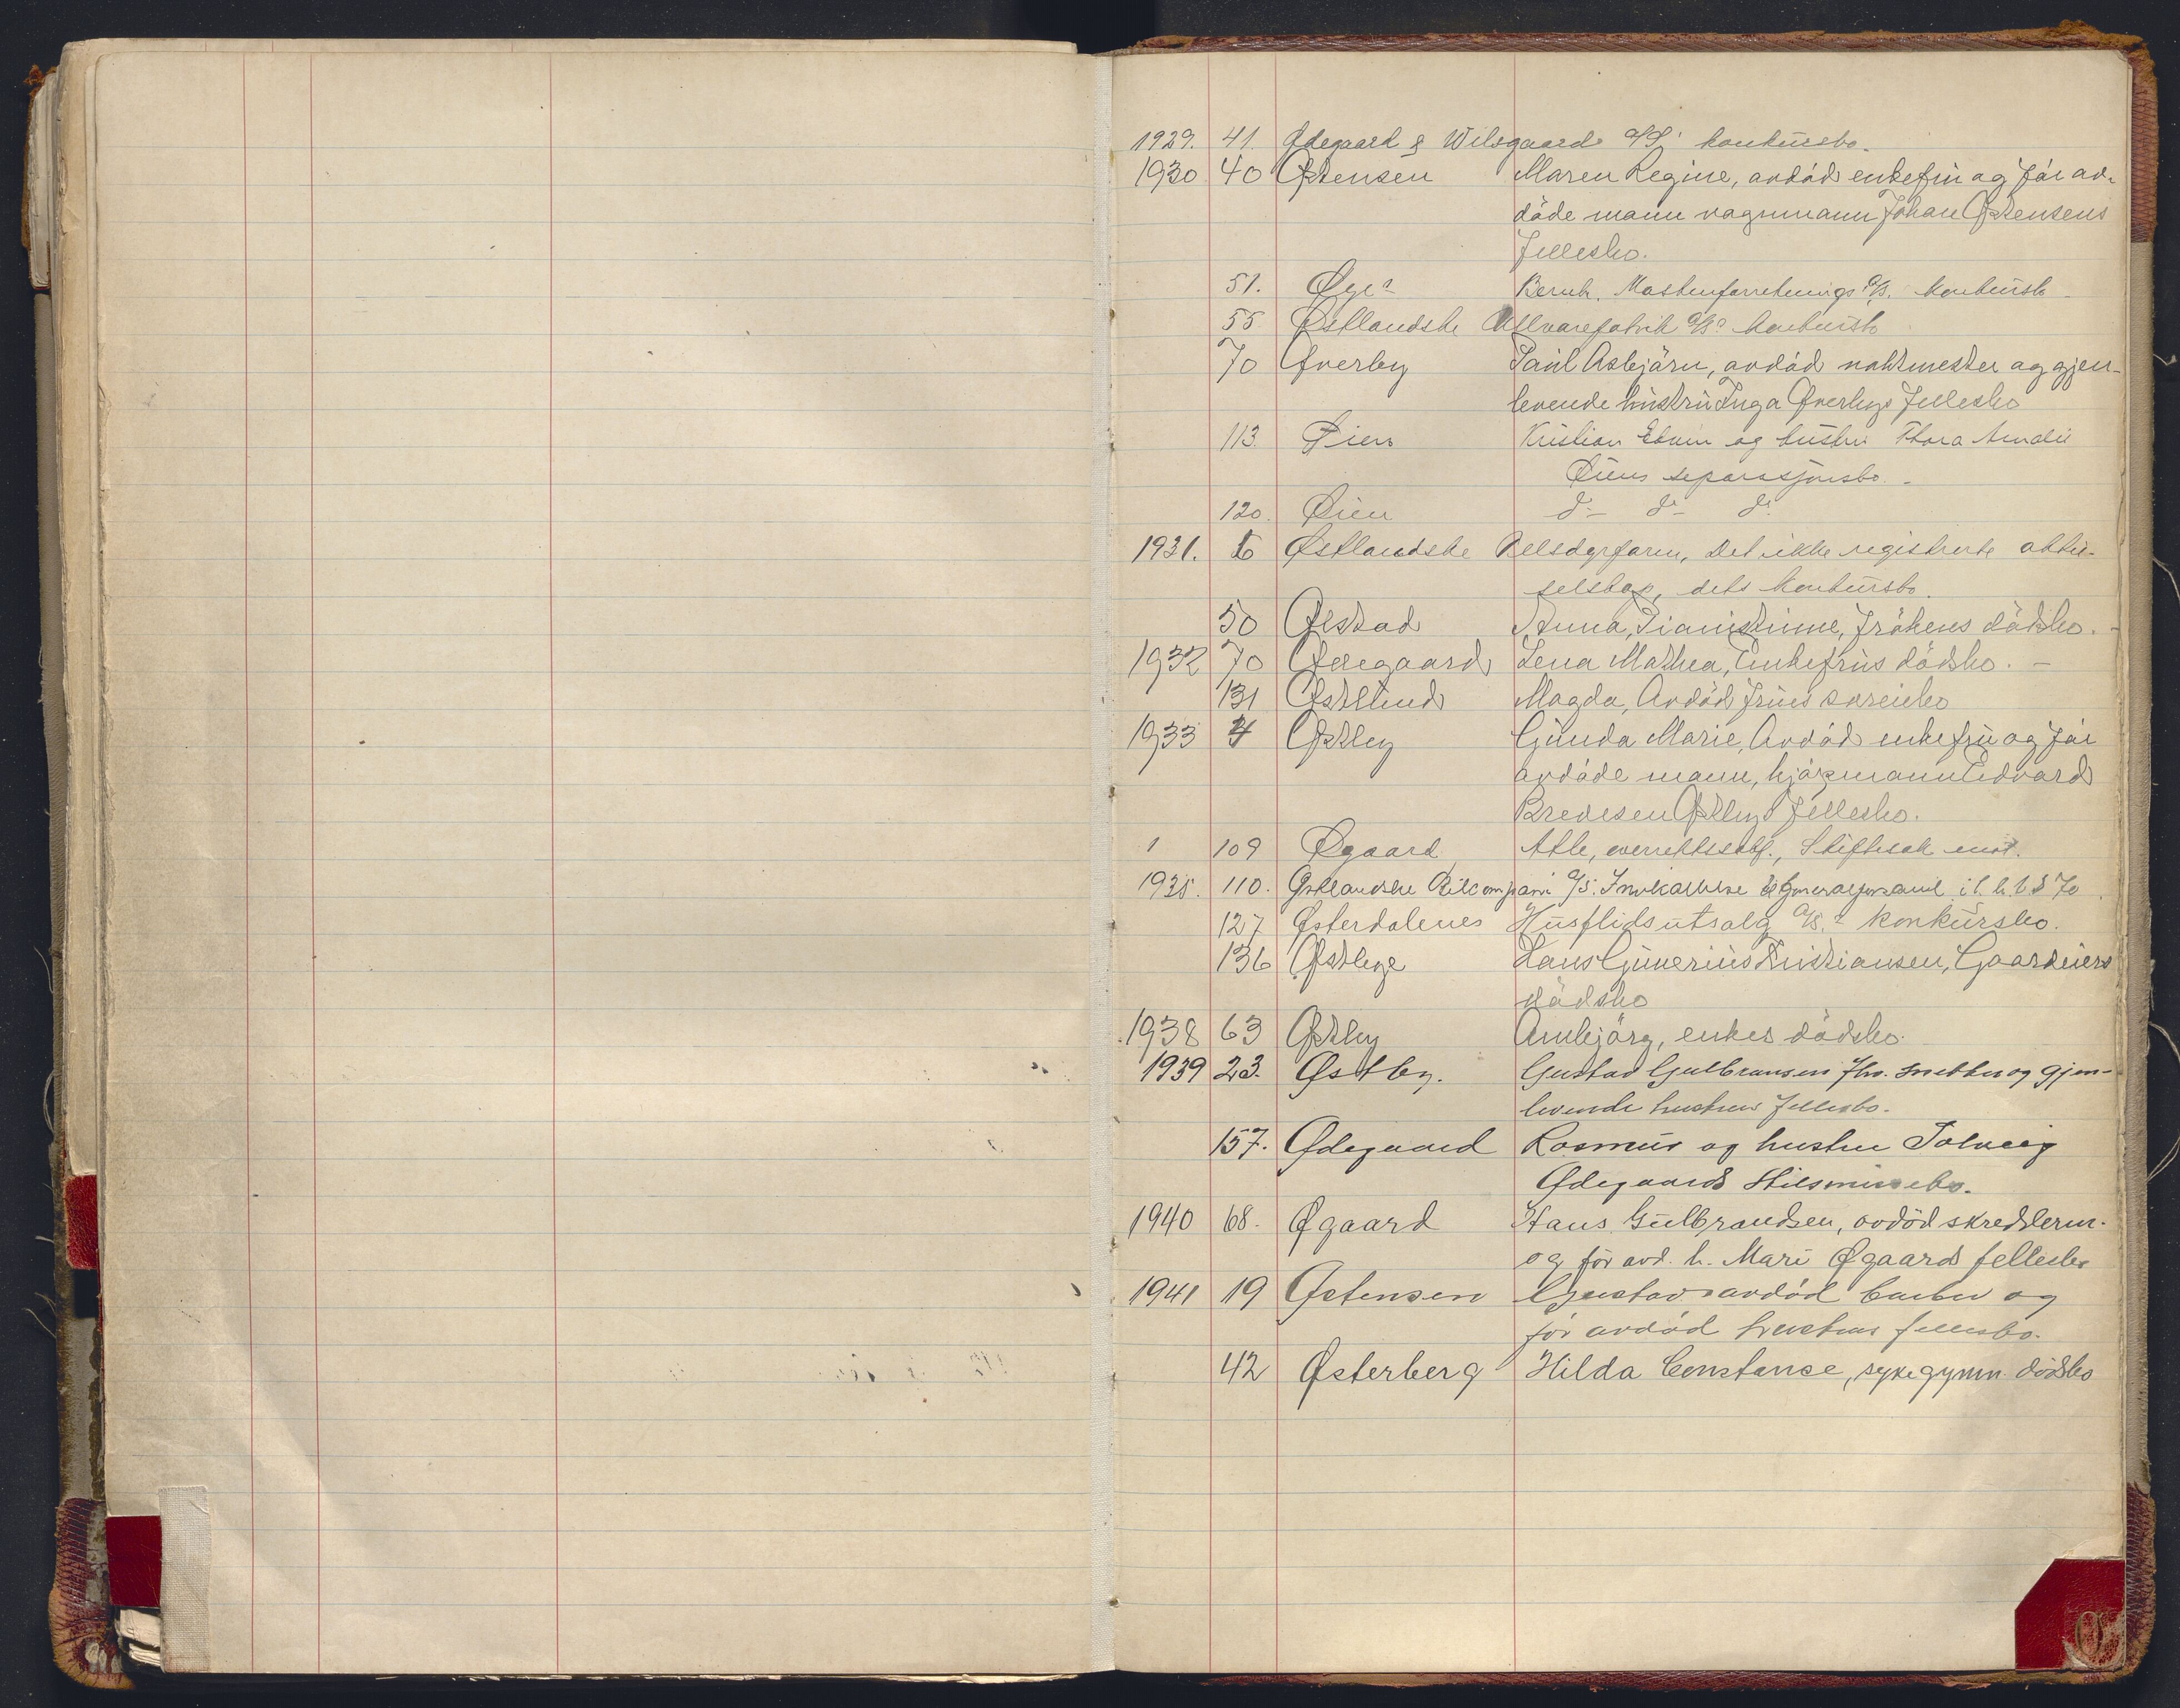 1929. 41. Ødegaard & Wilsgaard A/S' konkursbo.
1930 40 Østensen Maren Regine, avdöd enkefru og för av-
döde mann vognmann Johan Østensens
fellesbo.
51. Øye's Bernh. Maskinforretnings A/S. konkursbo
55 Østlandske Ullvarefabrik A/S's konkursbo
70 Øverby Paul Asbjörn, avdöd vaktmester og gjen-
levende hustru Inga Øverbys fellesbo
113. Øien Kristian Edvin og hustru Thora Amalie
Øiens separasjonsbo. -
120. Øien do do do
1931. 6 Østlandske Pelsdyrfarm, Det ikke registrerte aktie-
selskap, dets konkursbo.
50 Ølstad Anna, Pianistinne, frökens dödsbo. -
1932 70 Ødegaard Lena Mathea, Enkefrus dödsbo. -
131 Østlund Magda, Avdöd frues
1933 4 Østby Gunda Marie, Avdöd enkefru og för
avdöde mann, kjörmann Edvard
Bredesen Østbys fellesbo.
109 Øgaard Atle, overrettssakf., Skiftesak mot.
1935. 110. Østlandske Oilcompani A/S. Innkallelse til Generalforsaml. i h. h. t. § 70
127 Østerdalenes Husflidsutsalg A/S.'s konkursbo.
136 Østbye Hans Gunerius Kristiansen, Gaardeiers
dödsbo
1938 63 Østby Ambjörg, enkes dödsbo.
1939 23. Østby. Gustav Gulbransen fhv. snekker og gjen-
levende hustrus fellesbo.
157. Ødegaard Rasmus og hustru Solveig
Ødegaards Skilsmissebo.
1940 68. Øgaard Hans Gulbrandsen, avdöd skredderm.
og för avd. h. Mari Øgaards fellesbo
1941 19 Østensen Gustav avdöd barber og
för avdöd hustrus fellesbo.
42 Østerberg Hilda Constance, sykegymn. dödsbo
Ø